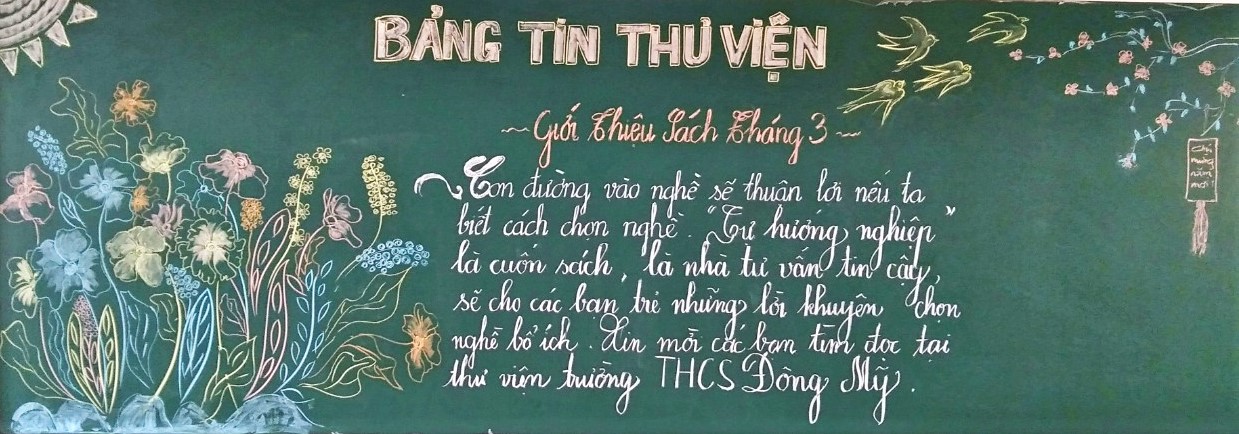 BẢNG TIN THƯ VIỆN
~ Giới Thiệu Sách Tháng 3 ~
Con đường vào nghề sẽ thuận lợi nếu ta
biết cách chọn nghề. "Tự hướng nghiệp"
là cuốn sách, là nhà tư vấn tin cậy,
sẽ cho các bạn trẻ những lời khuyên chọn
nghề bổ ích. Xin mời các bạn tìm đọc tại
thư viện trường THCS Đông Mỹ.
Chúc
mừng
năm
mới!